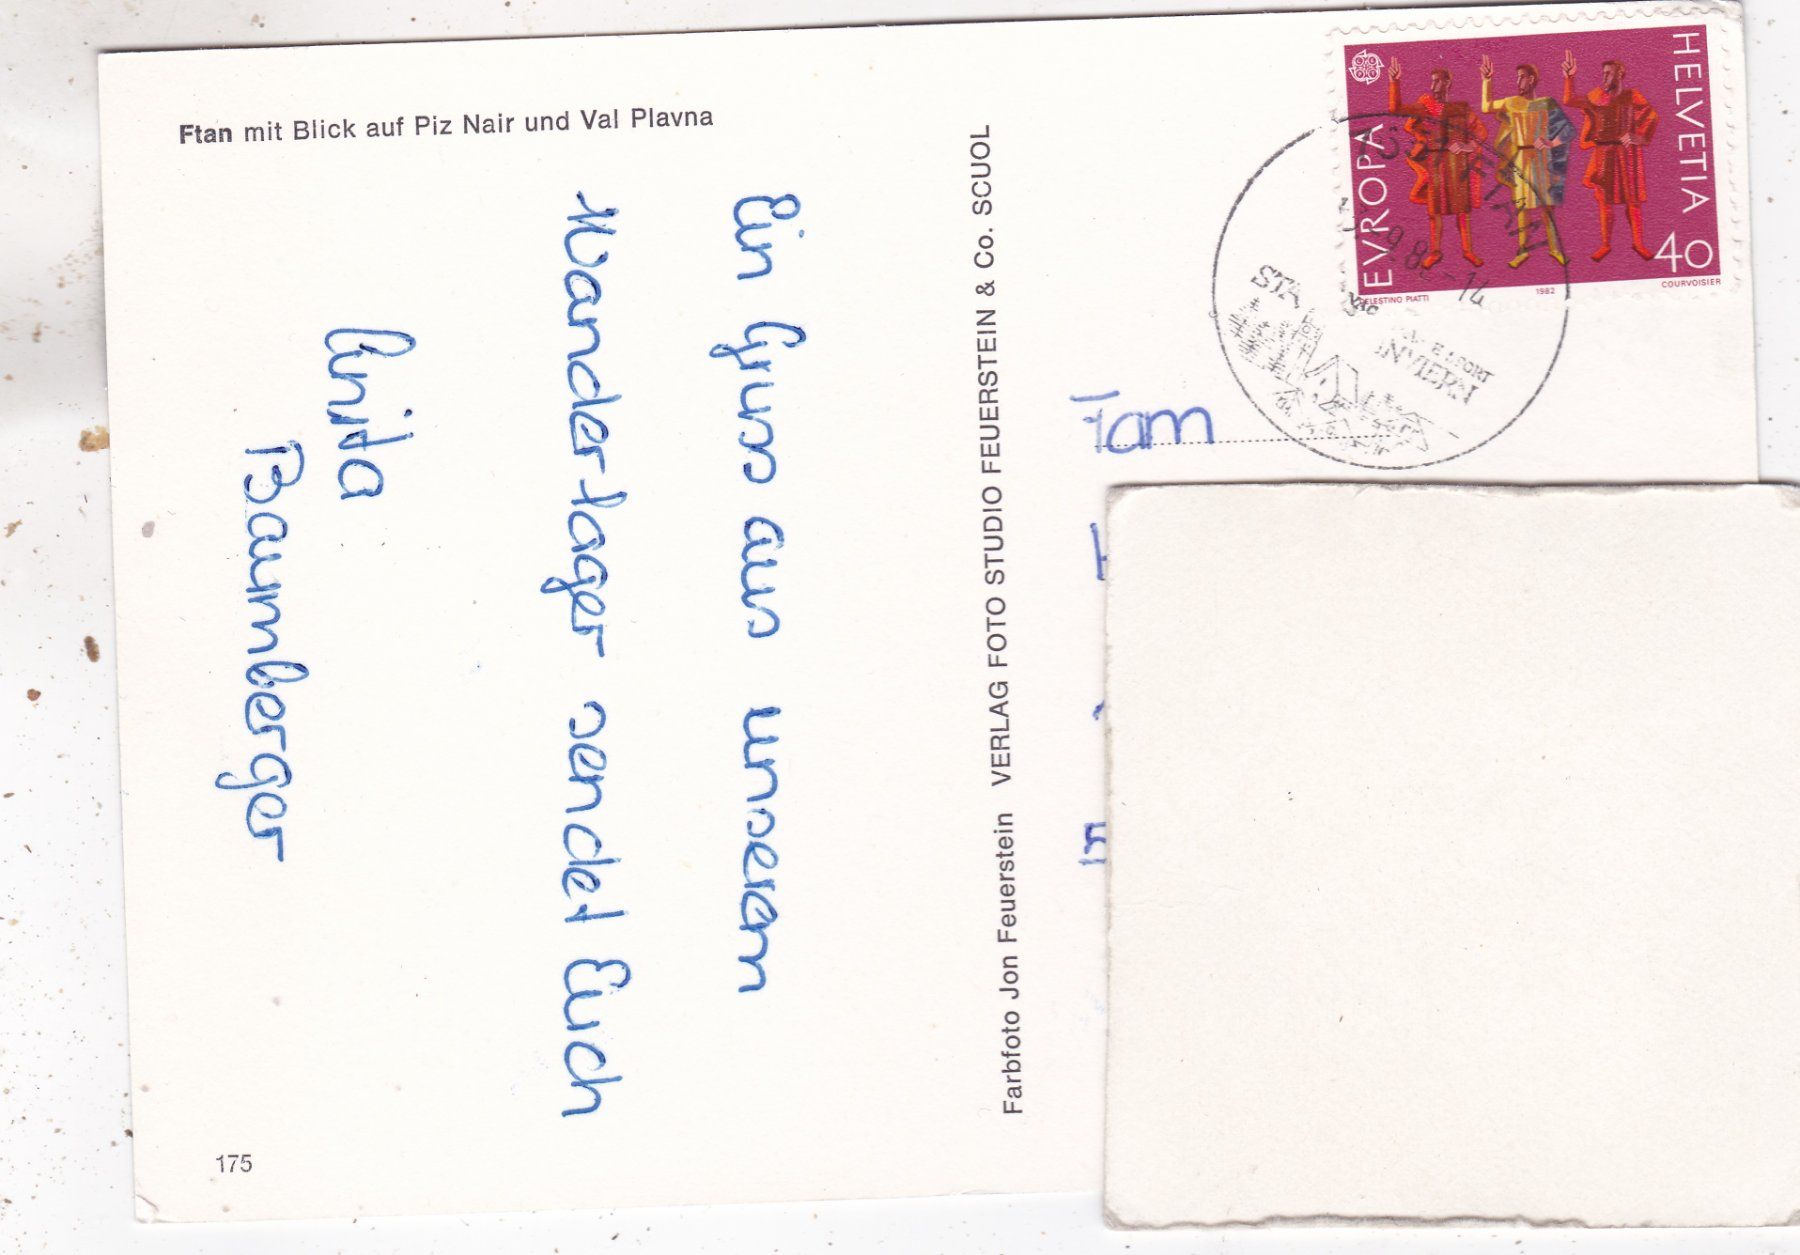 Ftan mit Blick auf Piz Nair und Val Plavna
Ein Gruss aus unserem
Wanderlager sendet Euch
Anita
Baumberger
175
Farbfoto Jon Feuerstein VERLAG FOTO STUDIO FEUERSTEIN & Co. SCUOL
EVROPA
HELVETIA
40
CELESTINO PIATTI
1982
COURVOISIER
FTAN
INVIERN
Fam